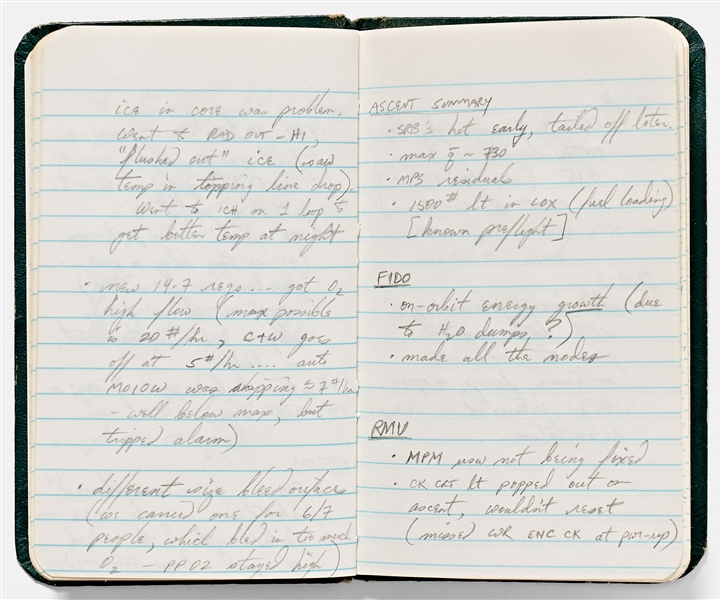 ice in core was problem.
went to RAD OUT - HI
"flushed out" ice (saw
temp in topping line drop).
went to ICH on 1 loop to
get better temp at night
• new 14.7 regs.... got O2
high flow (max possible
is 20 #/hr, C+W goes
off at 5 #/hr .... auto
was ≈ 7 #/hr
- well below max, but
tripped alarm)
• different size bleed orifices
(we carried one for 6/7
people, which bled in too much
O2 - PPO2 stayed high)
ASCENT SUMMARY
• SRB's hot early, tailed off later.
• max q̄ ~ 730
• MPS residuals
• 1500 # lt in LOX (fuel loading)
[known preflight]
FIDO
• on-orbit energy growth (due
to H2O dumps, ?)
• made all the nodes
RMU
• MPM now not being fixed
• CK CRT lt popped out on
ascent, wouldn't reset
(missed WR ENC CK at pwr-up)